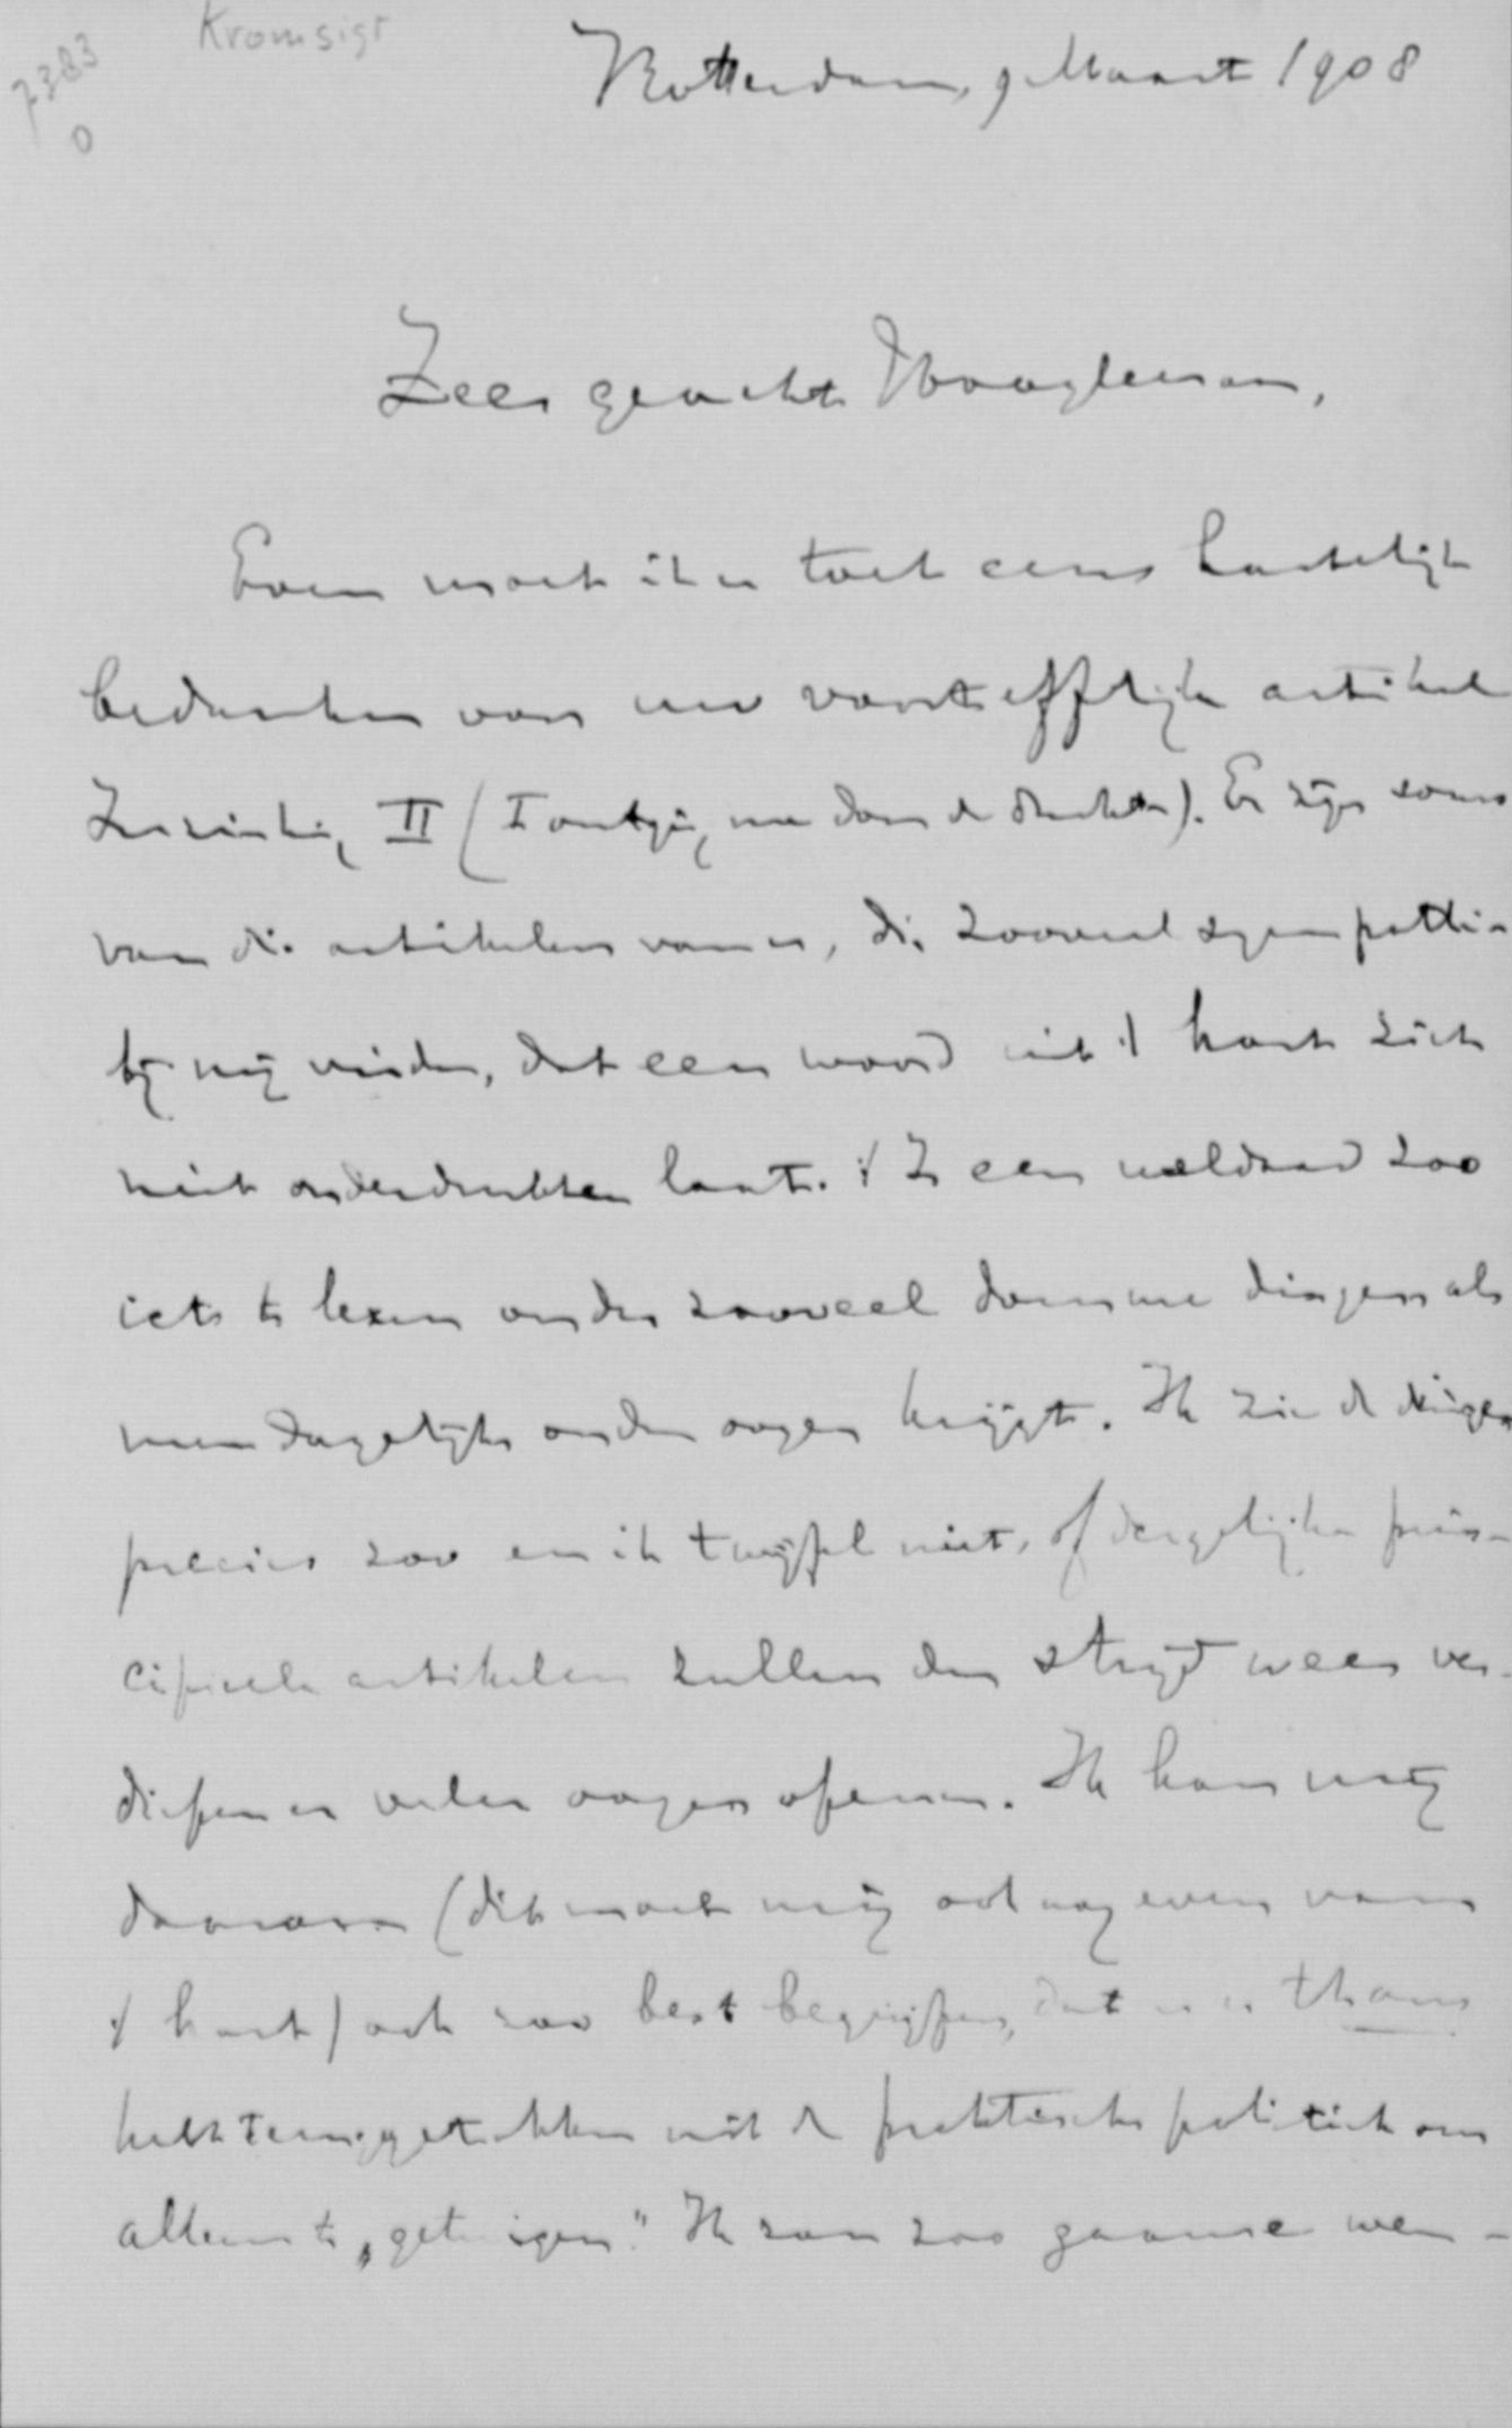 7383
0
Kromsigt
Rotterdam, 9 Maart 1908
Zeer geachte Hoogleeraar,
Even moet ik u toch eens hartelijk
bedanken voor uw voortreffelijk artikel
II (I ontging me door de drukte). Er zijn soms
van die artikelen van u, die zooveel sympathie
bij mij vinden, dat een woord uit 't hart zich
niet onderdrukken laat. 't Is een weldaad zoo
iets te lezen onder zooveel domme dingen als
men dagelijks onder oogen krijgt. Ik zie de dingen
precies zoo en ik twijfel niet, of dergelijke prin-
cipieele artikelen zullen den strijd weer ver-
diepen en velen oogen openen. Ik kan mij
daarom (dit moet mij ook nog even van
't hart) ook zoo best begrijpen, dat u u thans
hebt teruggetrokken uit de praktische politiek om
alleen te „getuigen". Ik zou zoo gaarne wen-